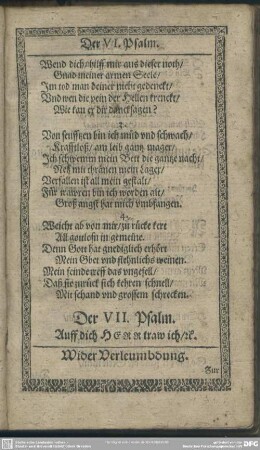 Der VI. Psalm.
Wend dich/hilff mir aus dieser noth/
Gnad meiner armen Seele/
Im tod man deiner nicht gedenckt/
Und wen die pein der Hellen krenckt/
Wie kan er dir dancksagen?
3.
Von seufftzen bin ich müd vnd schwach/
Krafftloß/ am leib gantz mager/
Ich schwemm mein Bett die gantze nacht/
Netz mit thränen mein Lager/
Verfallen ist all mein gestalt/
Für trawren bin ich worden alt/
Groß angst hat mich vmbfangen.
4.
Weicht ab von mir/ zu rücke kert
All gottlosn in gemeine.
Denn Gott hat gnediglich erhört
Mein Gbet vnd flehnlichs weinen.
Mein feinde treff das vngefell/
Daß sie zurück sich kehren schnell/
Mit schand vnd grossem schrecken.
Der VII. Psalm.
Auff dich HERR traw ich/ꝛc.
Wider Verleumbdung.